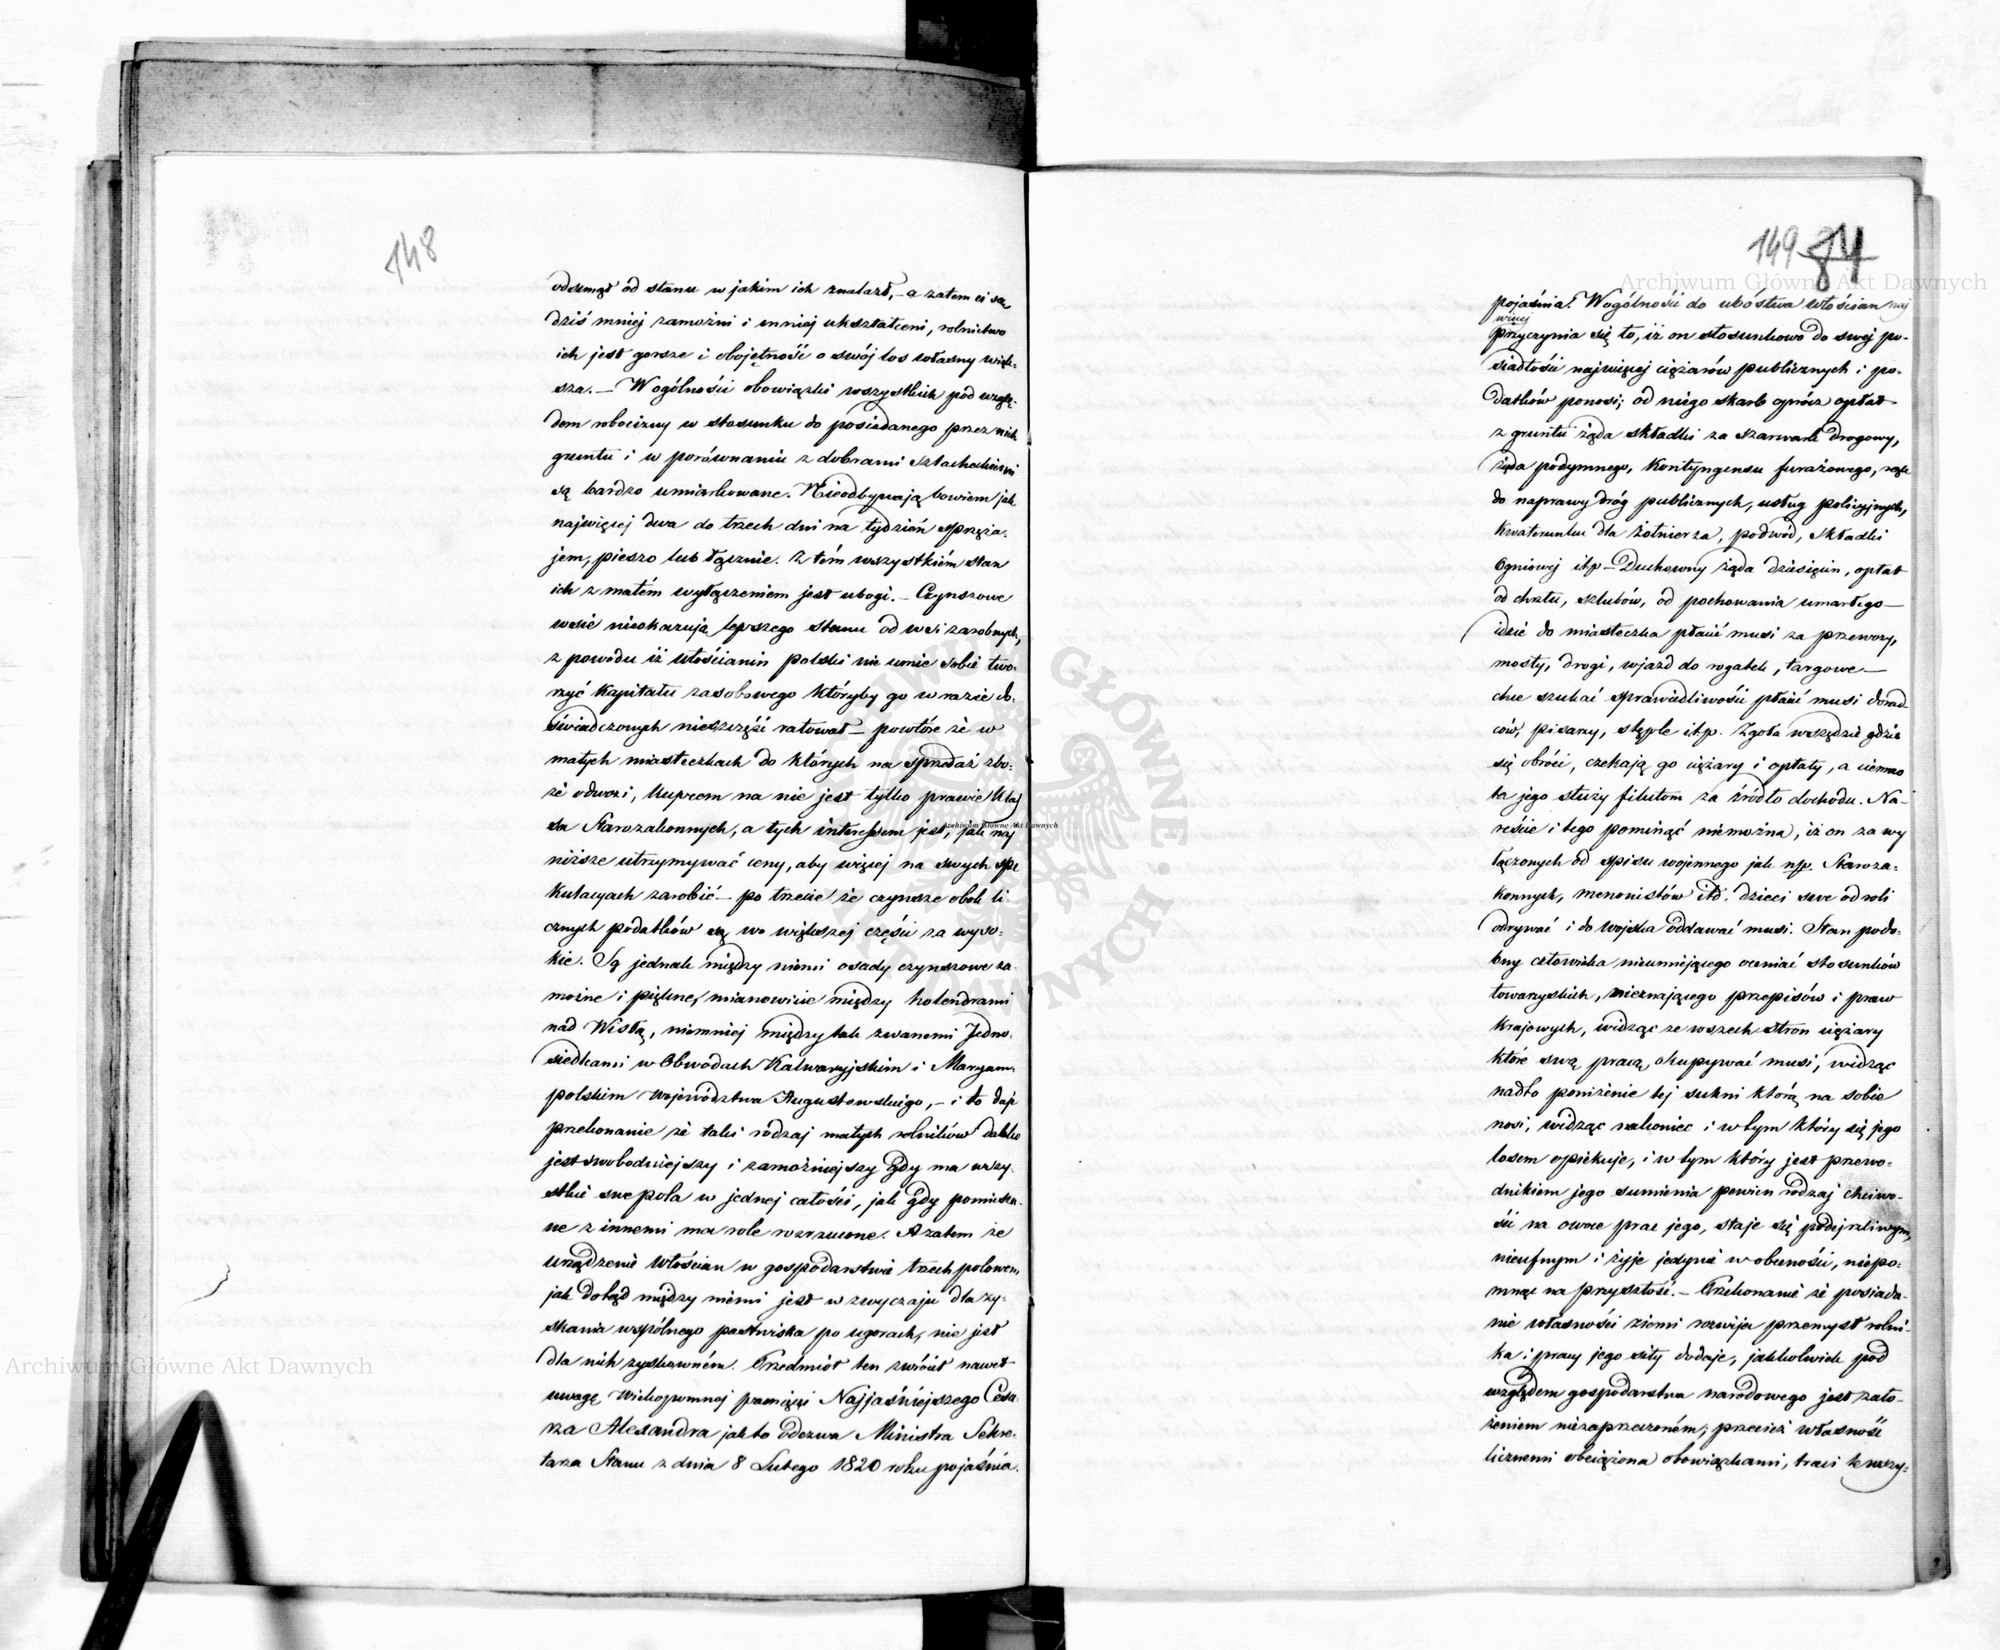 148
odsunął od stanu w jakim ich znalazł, – a zatem ci są
dziś mniej zamożni i mniej ukształceni, rolnictwo
ich jest gorsze i obojętność o swój los własny więk-
sza. – W ogólności obowiązki wszystkich pod wzglę-
dem robocizny w stosunku do posiadanego przez nich
gruntu i w porównaniu z dobrami szlacheckiemi
są bardzo umiarkowane. Nieodbywają bowiem jak
najwięcej dwa do trzech dni na tydzień sprzęża-
jem, pieszo lub łącznie. Z tém wszystkiém stan
ich z małém wyłączeniem jest ubogi. – Czynszowe
wsie nieokazują lepszego stanu od wsi zarobnych,
z powodu iż włościanin polski nie umie sobie two-
rzyć kapitału zasobowego któryby go w razie do-
świadczonych nieszczęść ratował – powtóre że w
małych miasteczkach do których na sprzedaż zbo-
że odwozi, kupcem na nie jest tylko prawie klas-
sa Starozakonnych, a tych interessem jest, jak naj
niższe utrzymywać ceny, aby więcej na swych spe
kulacyach zarobić – po trzecie że czynsze obok li-
cznych podatków są wo większej części za wyso-
kie. Są jednak między niemi osady czynszowe za-
możne i piękne, mianowicie między holendrami
nad Wisłą, niemniej między tak zwanemi Jedno-
siedlcami w Obwodach Kalwaryjskim i Maryam-
polskim Województwa Augustowskiego, – i to daje
przekonanie że taki rodzaj małych rolników daleko
jest swobodniejszy i zamożniejszy gdy ma wszy-
stkie swe pola w jednej całości, jak gdy pomiesza-
ne z innemi ma role rozrzucone. A zatem że
urządzenie włościan w gospodarstwie trzech polowem
jak dotąd między niemi jest w zwyczaju dla zy-
skania wspólnego pastwiska po ugorach, nie jest
dla nich zyskowném. Przedmiot ten zwrócił nawet
uwagę Wiekopomnej pamięci Najjaśniejszego Cesa
rza Alexandra jak to odezwa Ministra Sekre-
tarza Stanu z dnia 8 Lutego 1820 roku pojaśnia.
149 84
pojaśnia. W ogólności do ubóstwa włościan naj
więcej
przyczynia się to, iż on stosunkowo do swej po-
siadłości najwięcej ciężarów publicznych i po-
datków ponosi; od niego skarb oprócz opłat
z gruntu żąda składki za szarwark drogowy,
żąda podymnego, kontyngensu furażowego,
do naprawy dróg publicznych, usług policyjnych,
kwaterunku dla żołnierza, podwód, składki
Ogniowej itp – Duchowny żąda dziesięcin, opłat
od chrztu, szlubów, od pochowania umarłego –
idzie do miasteczka płacić musi za przewozy,
mosty, drogi, wjazd do rogatek, targowe –
chce szukać sprawiedliwości płacić musi dorad-
ców, pisarzy, stęple itp. Zgoła wszędzie gdzie
się obróci, czekają go ciężary i opłaty, a ciemno
ta jego służy filutom za źródło dochodu. Na-
reście i tego pominąć niemożna, iż on za wy
łączonych od spisu wojennego jak np. Staroza-
konnych, menonistów itd. dzieci swe od roli
odrywać i do wojska oddawać musi. Stan podo-
bny człowieka nieumiejącego oceniać stosunków
towarzyskich, nieznającego przepisów i praw
krajowych, widząc ze wszech stron ciężary
które swą pracą okupywać musi, widząc
nadto poniżenie tej sukni którą na sobie
nosi, widząc nakoniec i w tym który się jego
losem opiekuje, i w tym który jest przewo-
dnikiem jego sumienia pewien rodzaj chciwo-
ści na owoce prac jego, staje się podejrzliwym,
nieufnym i żyje jedynie w obecności, niepo-
mnąc na przyszłość. – Przekonanie że posiada-
nie własności ziemi rozwija przemysł rolni-
ka i pracy jego siły dodaje, jakkolwiek pod
względem gospodarstwa narodowego jest zało-
żeniem niezaprzeczoném; przecież własność
licznemi obciążona obowiązkami, traci te wszy-
Archiwum Główne Akt Dawnych
Archiwum Główne Akt Dawnych
Archiwum Główne Akt Dawnych